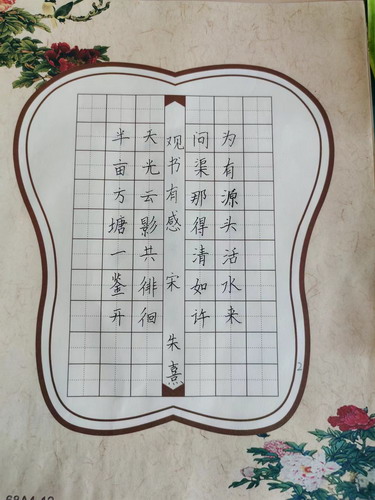 半亩方塘一鉴开
天光云影共徘徊
观书有感 宋 朱熹
问渠那得清如许
为有源头活水来
2